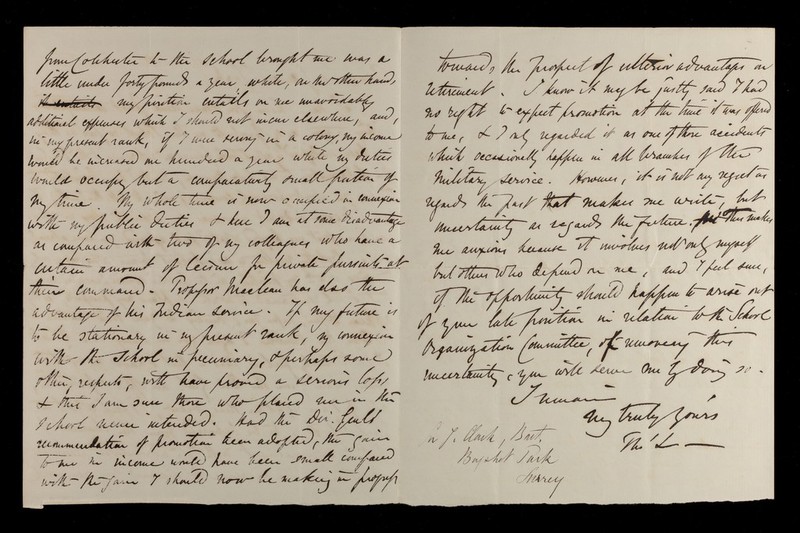 from Colchester to the school brought me was a
little under forty pounds a year, while, on the other hand,
it entails my position entails on me unavoidably
additional expenses which I should not incur elsewhere, and,
in my present rank, if I were serving in a colony, my income
would be increased one hundred a year while my duties
would occupy but a comparatively small portion of
my time. My whole time is now occupied in connexion
with my public duties & here I am at some disadvantage
as compared with two of my colleagues who have a
certain amount of leisure for private pursuits at
their command. Professor Maclean has also the
advantage of his Indian service. If my future is
to be stationary in my present rank, my connexion
with the School in pecuniary, & perhaps some
other, respects, will have proved a serious loss,
& this I am sure those who placed me in the
School never intended. Had the Dir. Genl's
recommendation of promotion been adopted, the gain
to me in income would have been small compared
with the gain I should now be making in progress
towards the prospect of ulterior advantages on
retirement. I know it may be justly said I had
no right to expect promotion at the time it was offered
to me, & I only regarded it as one of those accidents
which occasionally happen in all branches of the
Military Service. However, it is not my regret as
regards the past that makes me write, but
uncertainty as regards the future, this makes
me anxious because it involves not only myself
but others who depend on me, and I feel sure,
if the opportunity should happen to arise out
of your late position in relation to the School
Organization Committee, of removing this
uncertainty, you will serve me by doing so.
I remain
very truly yours
Tho L
Sr J. Clark, Bart,
Bagshot Park
Surrey